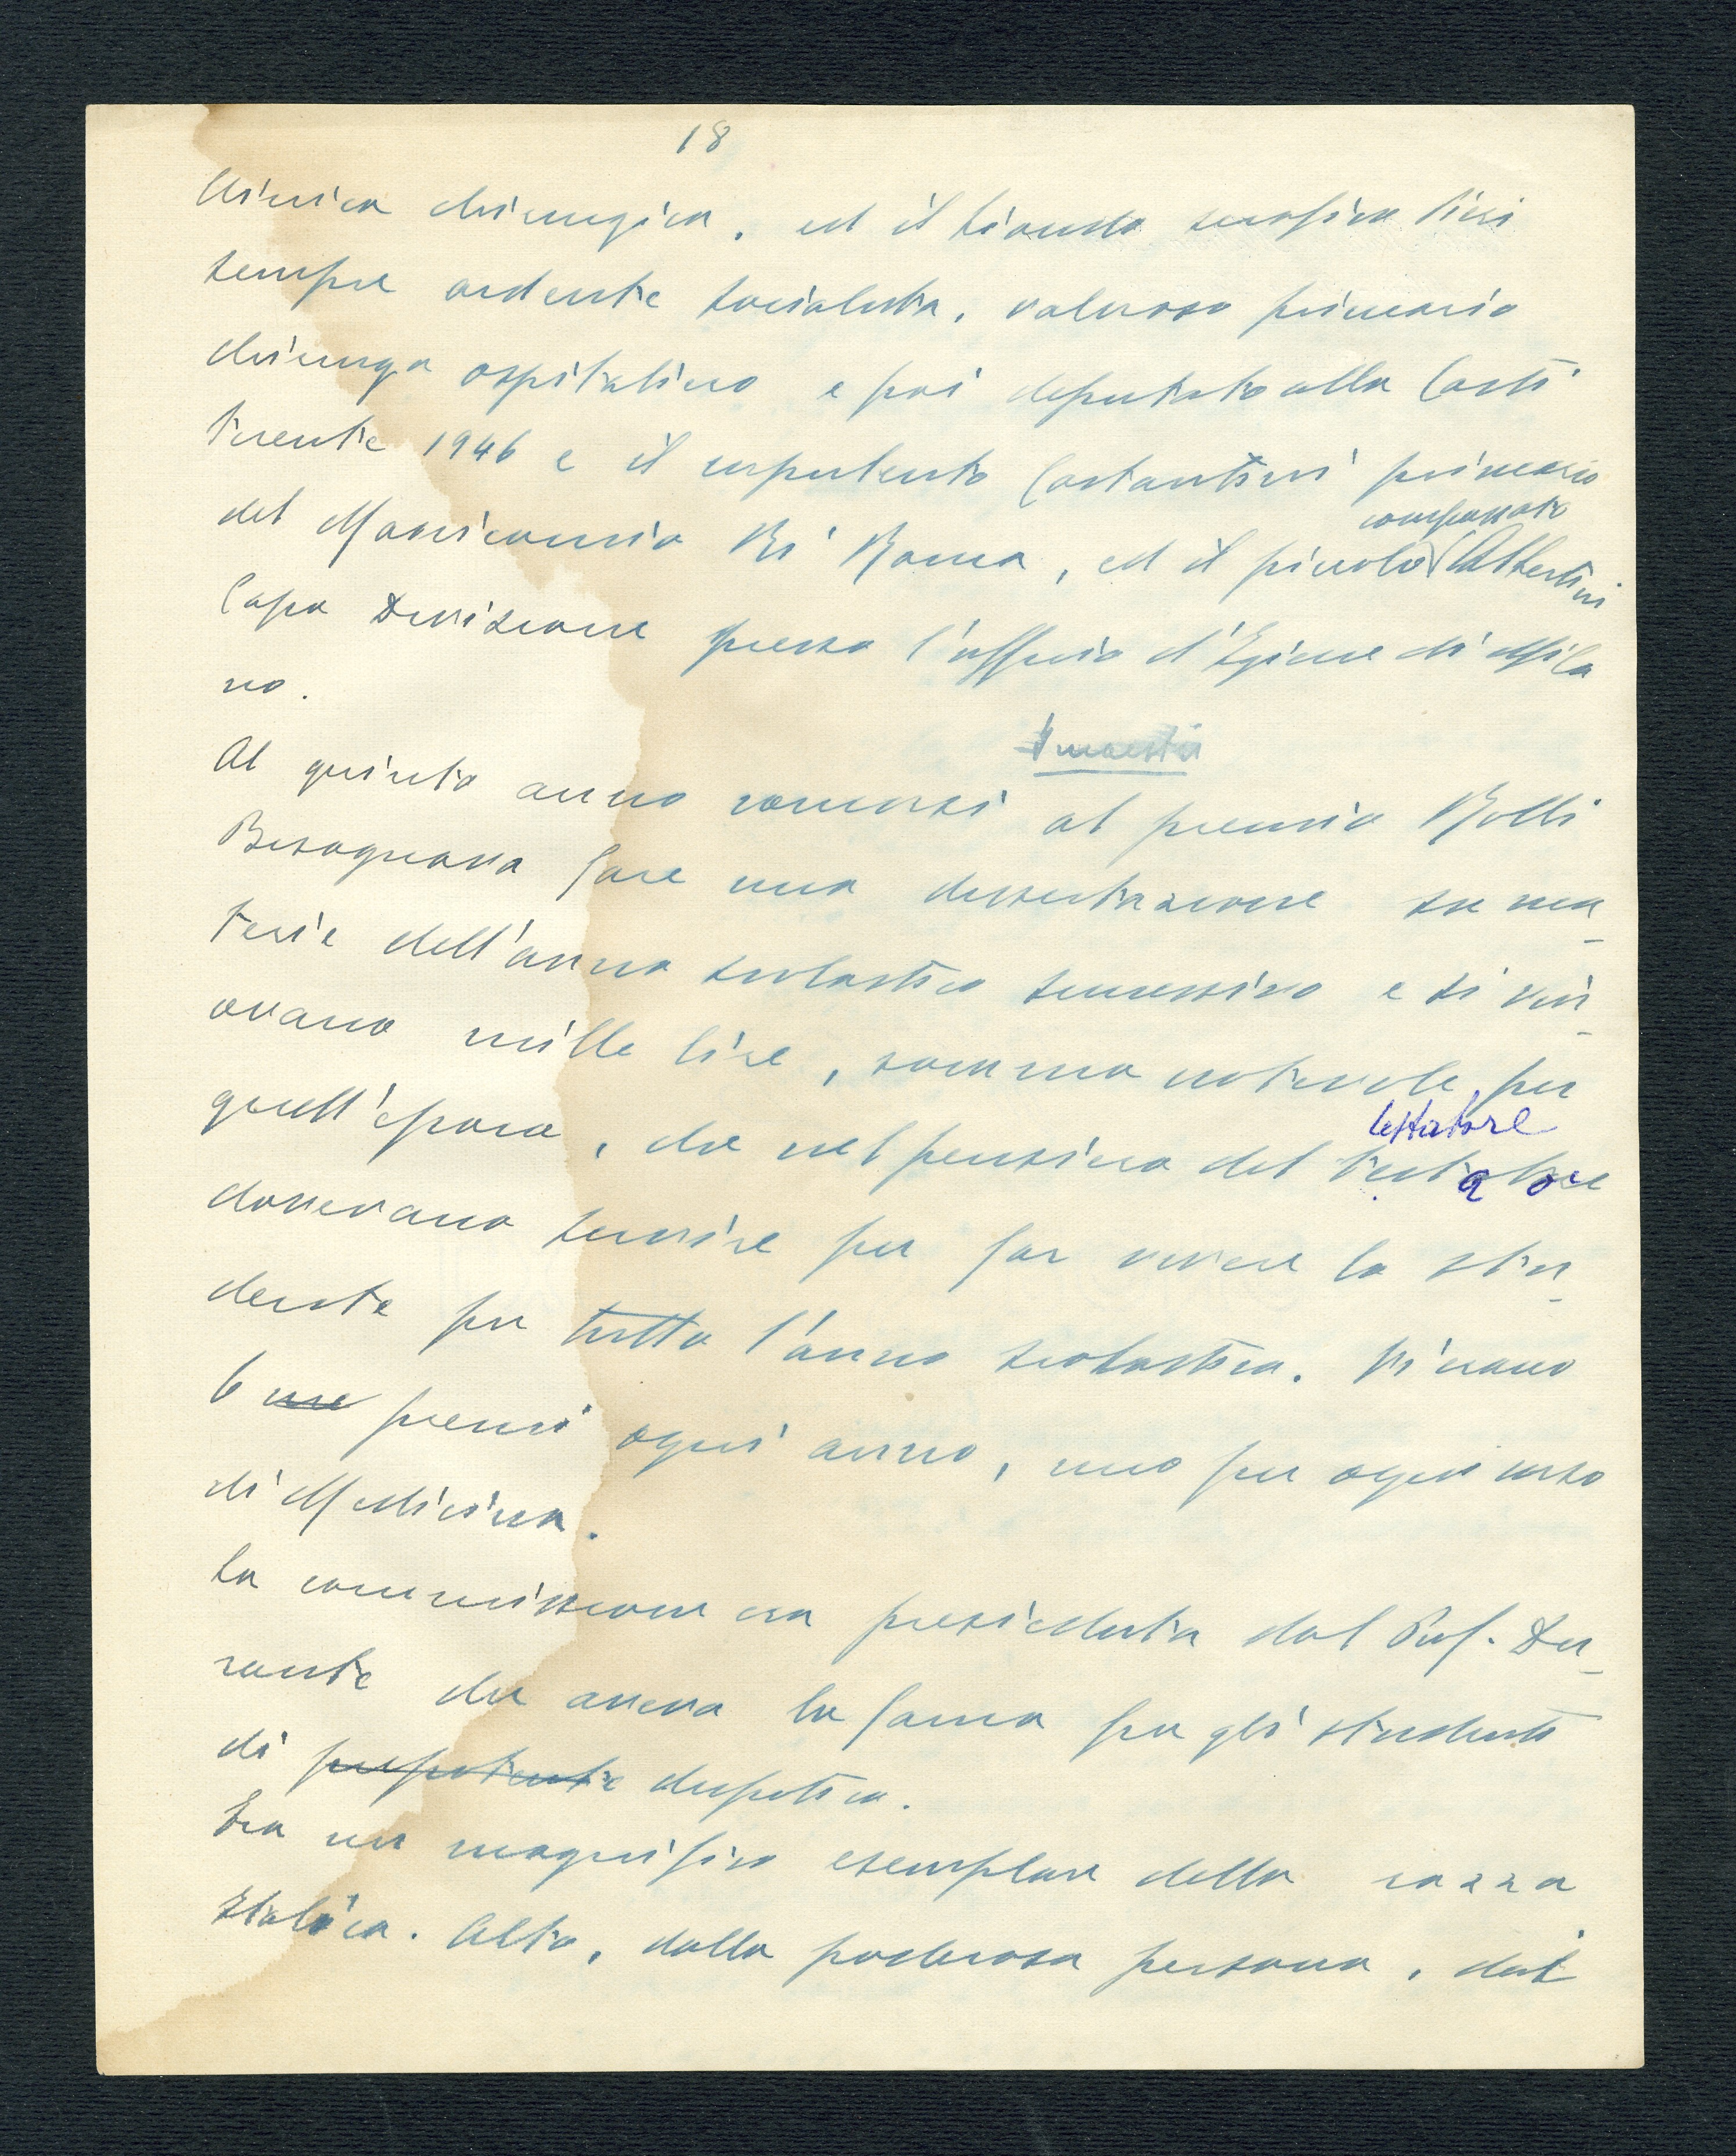 18
Clinica chirurgica, ed il biondo serafico Pieri
sempre ardente socialista, valoroso primario
chirurgo ospitaliero e poi deputato alla Costi
tuente 1946 e il corpulento Costantini primario
del Manicomio di Roma, ed il piccolo compassato Albertini
Capo Divisione presso l'ufficio d'Igiene di Mila
no.
I maestri
Al quinto anno concorsi al premio Rolli
Bisognava fare una dissertazione su ma-
terie dell'anno scolastico successivo e si vin-
cevano mille lire, somma notevole per
quell'epoca, che nel pensiero del testatore testatore
dovevano servire per far vivere lo stu-
dente per tutto l'anno scolastico. Vi erano
6 premi ogni anno, uno per ogni corso
di Medicina.
La commissione era presieduta dal Prof. Du-
rante che aveva la fama fra gli studenti
di prepotente dispotico.
Era un magnifico esemplare della razza
Italica. Alto, dalla poderosa persona, dal